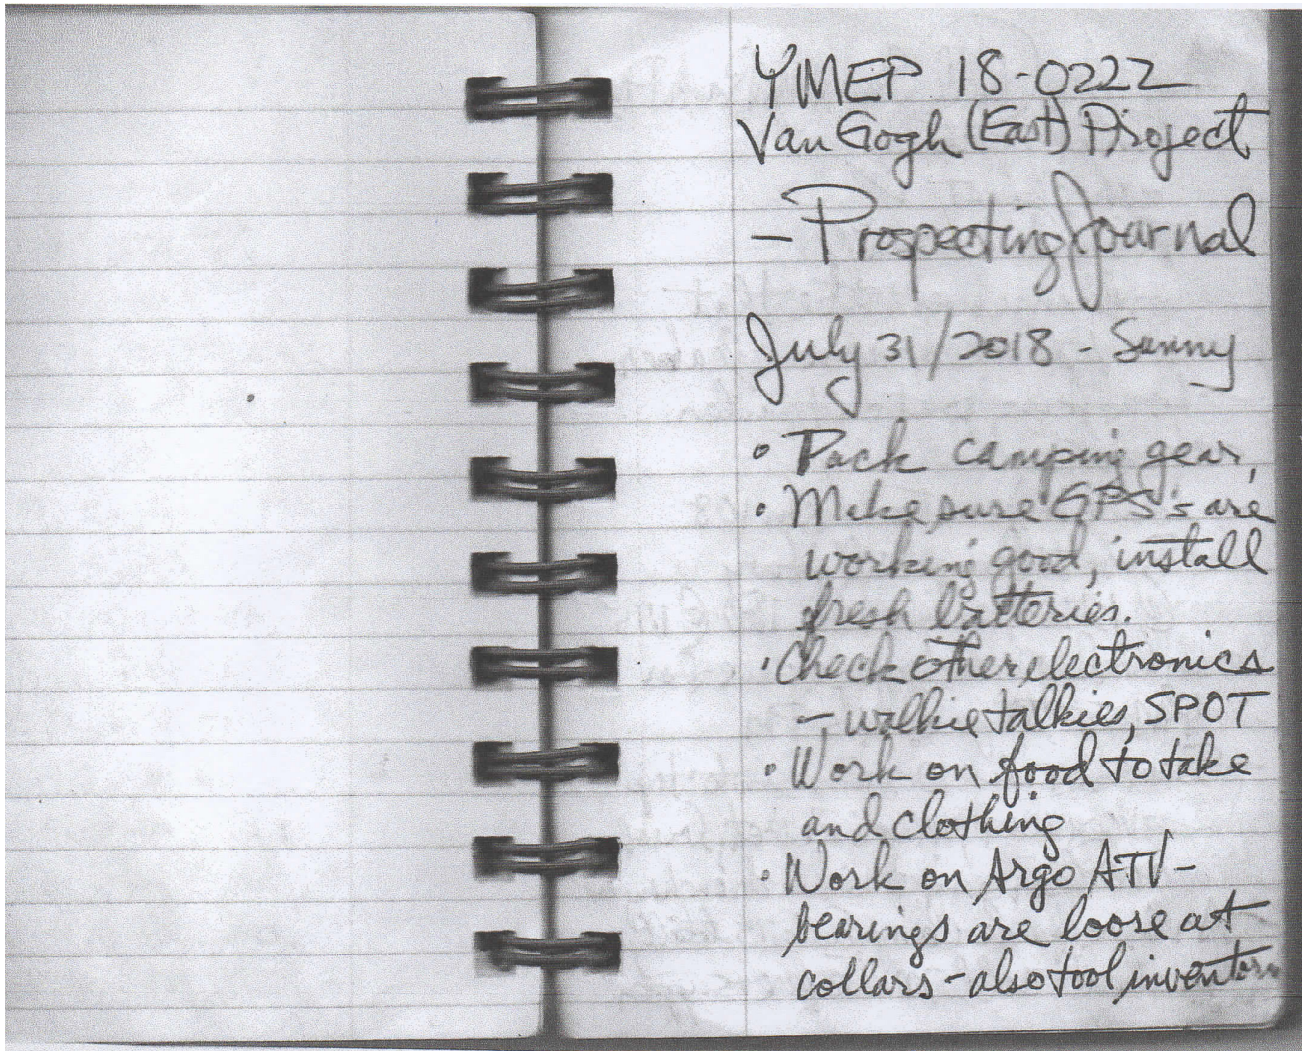 YMEP 18-0222
Van Gogh (East) Project
- Prospecting Journal
July 31/2018 - Sunny
• Pack camping gear,
• Make sure GPS's are
working good, install
fresh batteries.
• Check other electronics
- walkie talkies, SPOT
• Work on food to take
and clothing
• Work on Argo ATV -
bearings are loose at
collars - also tool inventory